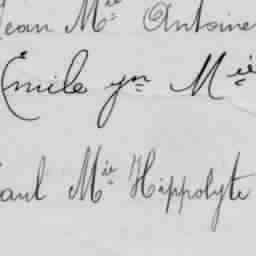 Jean Mie Antoine
Émile yn Mie
Paul Mie Hippolyte